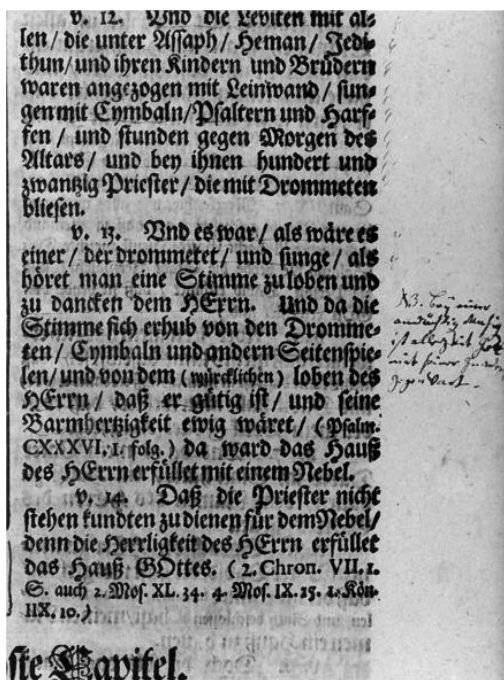 v. 12. Vnd die Leviten mit al⸗
len/ die unter Assaph/ Heman/ Jedi⸗
thun/ und ihren Kindern und Brüdern
waren angezogen mit Leinwand/ sun⸗
gen mit Cymbaln/ Psaltern und Harf⸗
fen/ und stunden gegen Morgen des
Altars/ und bey ihnen hundert und
zwantzig Priester/ die mit Drommeten
bliesen.
v. 13. Vnd es war/ als wäre es
einer/ der drommetet/ und sunge/ als
höret man eine Stimme zu loben und
zu dancken dem HErrn. Und da die
Stimme sich erhub von den Dromme⸗
ten/ Cymbaln und andern Seitenspie⸗
len/ und von dem (würcklichen) loben des
HErrn/ daß er gütig ist/ und seine
Barmhertzigkeit ewig wäret/ (Psalm.
CXXXVI. 1. folg.) da ward das Hauß
des HErrn erfüllet mit einem Nebel.
v. 14. Daß die Priester nicht
stehen kundten zu dienen für dem Nebel/
denn die Herrligkeit des HErrn erfüllet
das Hauß GOttes. (2. Chron. VII. 1.
S. auch 2. Mos. XL. 34. 4. Mos. IX. 15. 1. Kön.
IIX. 10.)
ste Capitel.
NB. Bey einer
andächtig Musiq
ist allezeit Gott
mit seiner Gnaden
Gegenwart.